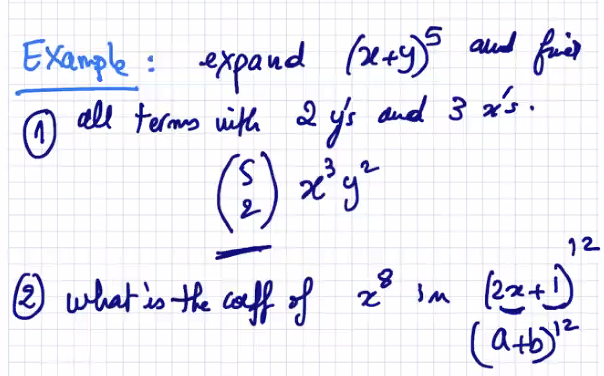 Example: expand (x+y)^5 and find
① all terms with 2 y's and 3 x's.
(5 2) x^3 y^2
② what is the coeff of x^8 in (2x+1)^12
(a+b)^12